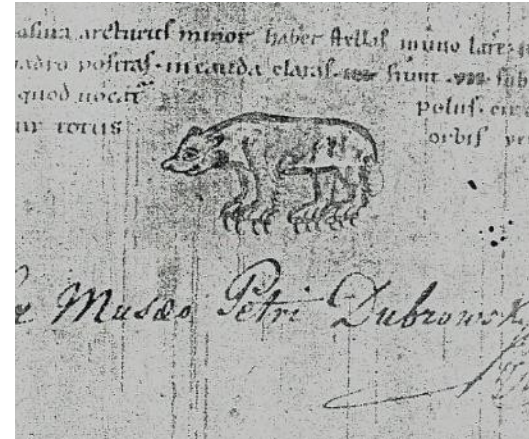 arcturus minor habet stellas in uno latere
quadro positas in cauda claras sunt sub
quod uocat polus
totus orbis
Ex Musæo Petri Dubrowsky